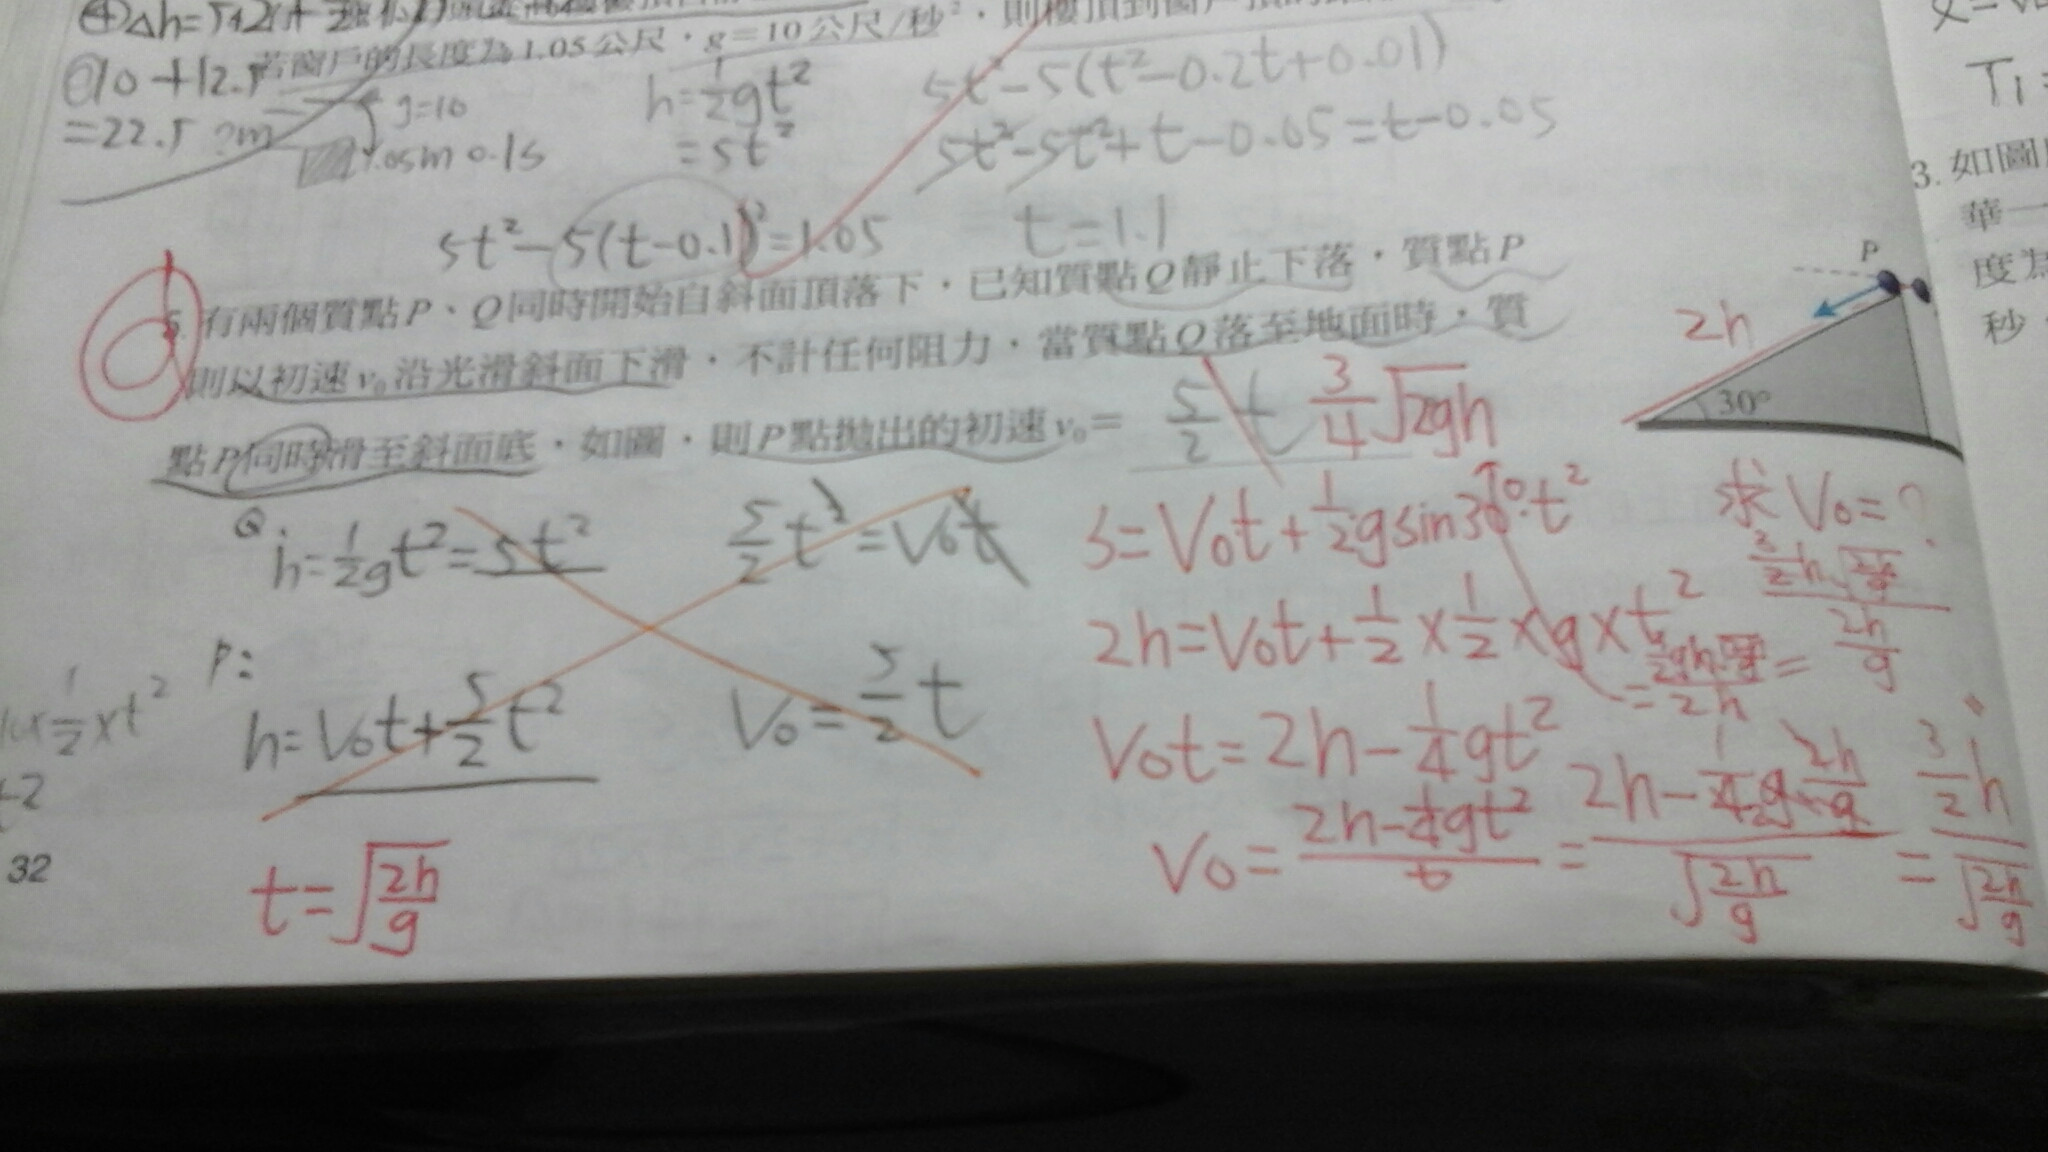 若窗戶的長度為1.05公尺,g=10公尺/秒²,則樓頂到窗戶頂的
10+12.5
=22.5
g=10
1.05m 0.1s
h=½gt²
=5t²
5t²-5(t²-0.2t+0.01)
5t²-5t²+t-0.05=t-0.05
5t²-5(t-0.1)²=1.05
t=1.1
5. 有兩個質點P、Q同時開始自斜面頂落下,已知質點Q靜止下落,質點P
則以初速v₀沿光滑斜面下滑,不計任何阻力,當質點Q落至地面時,質
點P同時滑至斜面底,如圖,則P點拋出的初速v₀=
5/2 t
3/4 √2gh
P
2h
30°
求V₀=?
Q
h=½gt²=5t²
5/2 t²=V₀t
P:
h=V₀t+5/2 t²
V₀=5/2 t
t=√(2h/g)
S=V₀t+½gsin30°·t²
2h=V₀t+½×½×g×t²
V₀t=2h-¼gt²
V₀=(2h-¼gt²)/t=(2h-¼g·2h/g)/√(2h/g)=(3/2 h)/√(2h/g)
32
3. 如圖
華一
度為
秒
T₁=